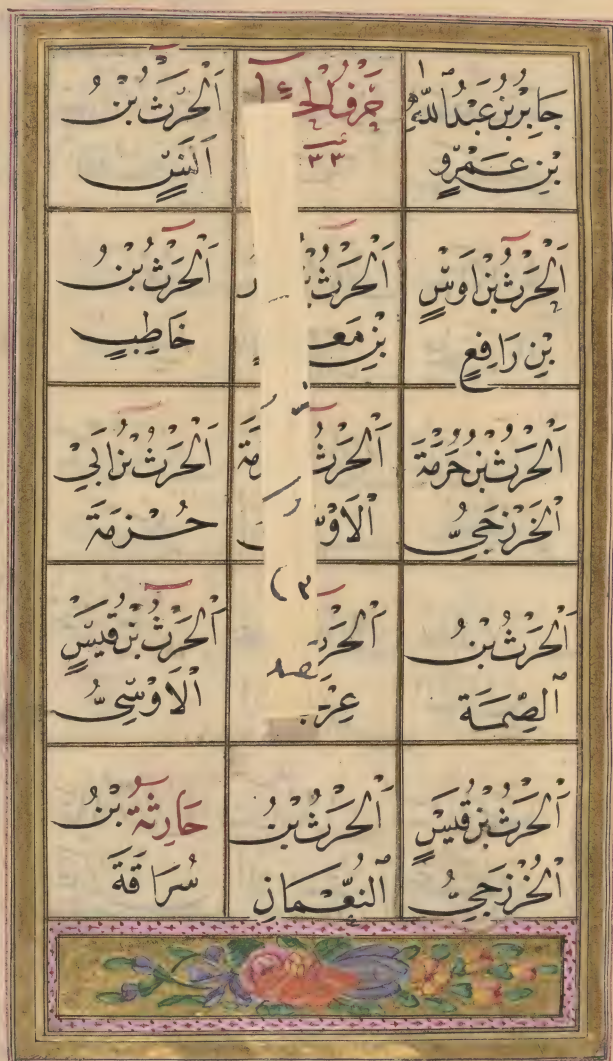 جَابِرُ بْنُ عَبْدُ اللهِ
بْنِ عَمْرٍو
حَرْفُ الْحَاءِ
٣٣
اَلْحَرْثُ بْنُ
اَنَسٍ
اَلْحَرْثُ بْنُ اَوْسٍ
بْنِ رَافِعٍ
اَلْحَرْثُ
بْنِ
اَلْحَرْثُ بْنُ
حَاطِبٍ
اَلْحَرْثُ بْنُ خَزَمَةَ
الْخَزْرَجِيُّ
اَلْحَرْثُ
الْاَوْسِيُّ
اَلْحَرْثُ بْنُ اَبِيْ
خُزْمَةَ
اَلْحَرْثُ بْنُ
اَلصِّمَةَ
اَلْحَرْثُ
اَلْحَرْثُ بْنُ قَيْسٍ
الْاَوْسِيُّ
اَلْحَرْثُ بْنُ قَيْسٍ
الْخَزْرَجِيُّ
اَلْحَرْثُ بْنُ
النُّعْمَانِ
حَارِثَةُ بْنُ
سُرَاقَةَ